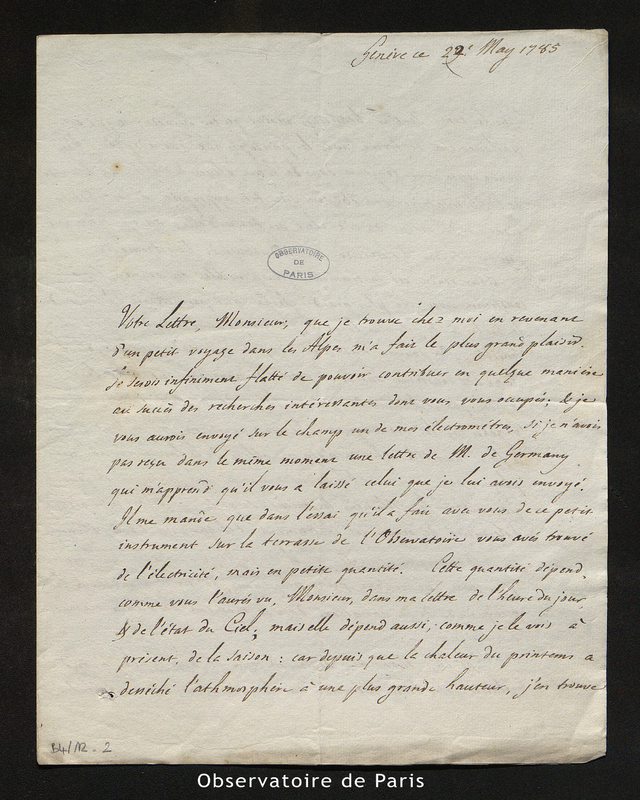 Genève ce 22e May 1785
OBSERVATOIRE
DE
PARIS
Votre Lettre, Monsieur, que je trouve chez moi en revenant
d'un petit voyage dans les Alpes m'a fait le plus grand plaisir.
Je serois infiniment flatté de pouvoir contribuer en quelque manière
au succès des recherches intéressantes dont vous vous occupés; & je
vous aurois envoyé sur le champ un de mes électromètres, si je n'avois
pas reçu dans le même moment une lettre de M. de Germany
qui m'apprend qu'il vous a laissé celui que je lui avois envoyé.
Il me mande que dans l'essai qu'il a fait avec vous de ce petit
instrument sur la terrasse de l'Observatoire vous avés trouvé
de l'électricité, mais en petite quantité. Cette quantité dépend,
comme vous l'aurés vu, Monsieur, dans ma lettre de l'heure du jour
& de l'état du Ciel; mais elle dépend aussi, comme je le vois à
présent, de la saison : car depuis que la chaleur du printems a
desséché l'athmosphère à une plus grande hauteur, j'en trouve
B4/12 - 2
Observatoire de Paris